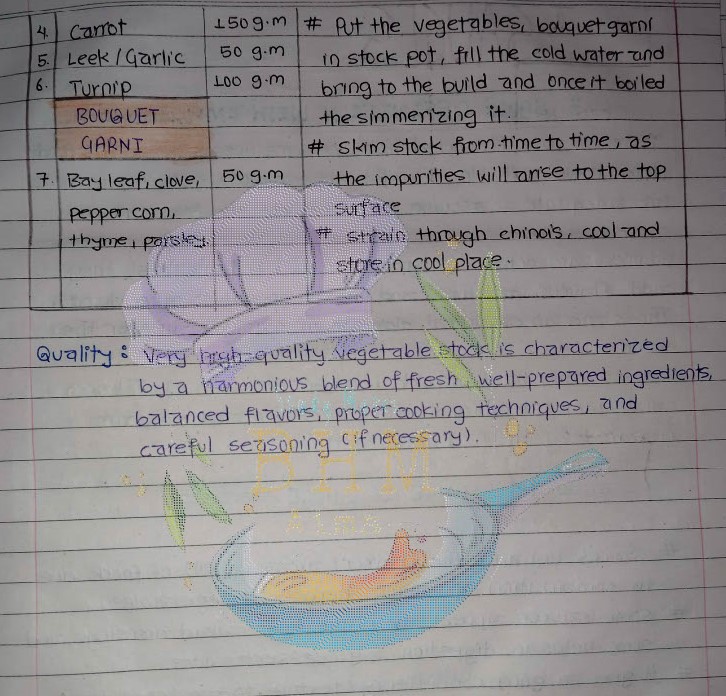 4. Carrot 150 g.m # Put the vegetables, bouquet garni
5. Leek / Garlic 50 g.m in stock pot, fill the cold water and
6. Turnip 100 g.m bring to the build and once it boiled
BOUQUET the simmerizing it.
GARNI # Skim stock from time to time, as
7. Bay leaf, clove, 50 g.m the impurities will arise to the top
pepper corn, surface
thyme, parsley # strain through chinois, cool and
store in cool place.
Quality : Very high-quality vegetable stock is characterized
by a harmonious blend of fresh, well-prepared ingredients,
balanced flavors, proper cooking techniques, and
careful seasoning (if necessary).
BHM